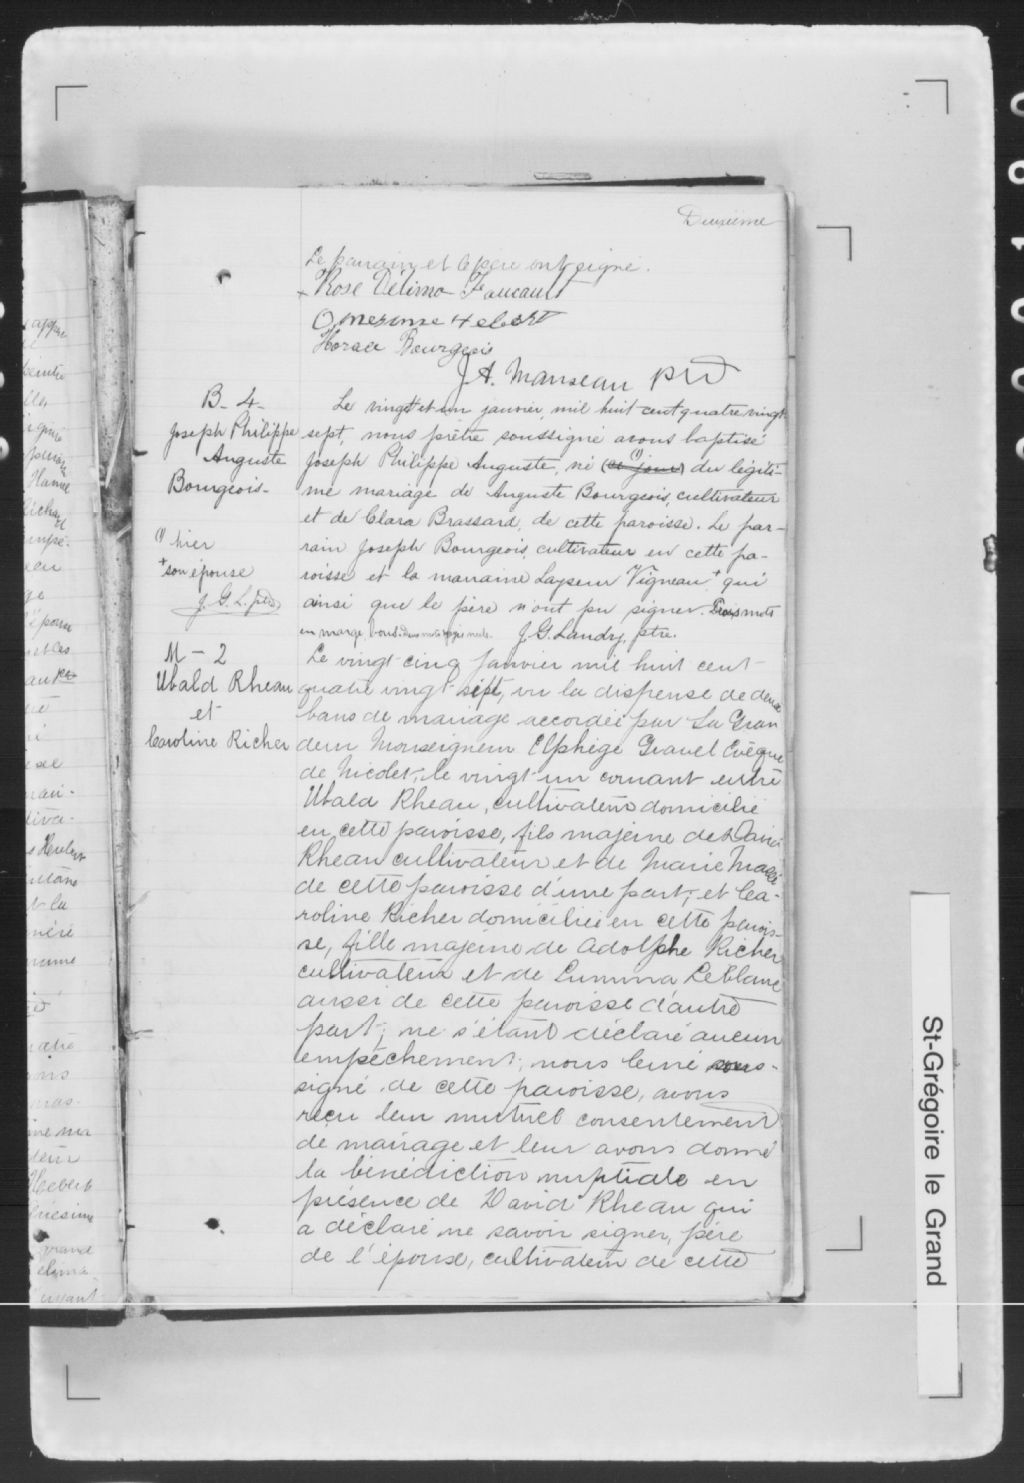 Deuxième
Le parrain et le père ont signé.
Rose Délima Foucault
Onesime Hebert
Horace Bourgeois
J. A. Manseau Ptr
B - 4 -
Joseph Philippe
Auguste
Bourgeois -
Le vingt et un janvier, mil huit cent quatre vingt
sept, nous prêtre soussigné avons baptisé
Joseph Philippe Auguste, né (ce jour) (1) du légiti-
me mariage de Auguste Bourgeois, cultivateur
et de Clara Brassard, de cette paroisse. Le par-
rain Joseph Bourgeois, cultivateur en cette pa-
roisse et la marraine Vigneau + qui
ainsi que le père n'ont pu signer. Trois mots
en marge, bons. Deux mots nuls. J. G. Landry, ptre.
(1) hier
+ son épouse
J. G. L. ptre
M - 2
Ubald Rheau
et
Caroline Richer
Le vingt-cinq Janvier mil huit cent
quatre vingt sept, vu la dispense de deux
bans de mariage accordée par Sa Gran
deur Monseigneur Elphège Gravel Evêque
de Nicolet, le vingt-un courant entre
Ubald Rheau, cultivateur domicilié
en cette paroisse, fils majeur de David
Rheau cultivateur et de Marie
de cette paroisse d'une part; et Ca-
roline Richer domiciliée en cette parois-
se, fille majeure de Adolphe Richer
cultivateur et de Emma LeBlanc
aussi de cette paroisse d'autre
part; ne s'étant déclaré aucun
empêchement; nous Curé sous-
signé de cette paroisse, avons
reçu leur mutuel consentement
de mariage et leur avons donné
la bénédiction nuptiale en
présence de David Rheau qui
a déclaré ne savoir signer, père
de l'époux, cultivateur de cette
St-Grégoire le Grand